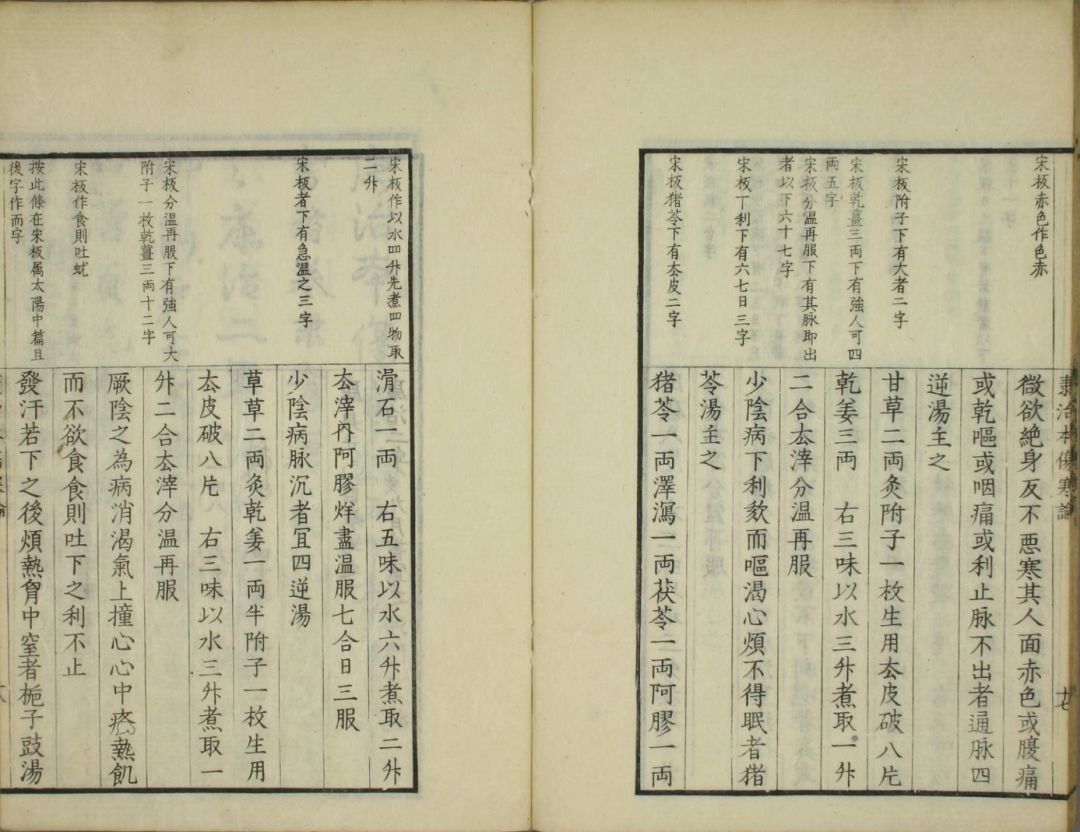 宋板赤色作色赤
宋板附子下有大者二字
宋板乾薑三両下有強人可四
両五字
宋板分温再服下有其脉即出
者以下六十七字
宋板丅利下有六七日三字
宋板猪苓下有厺皮二字
康治本傷寒論
十七
微欲絶身反不悪寒其人面赤色或腹痛
或乾嘔或咽痛或利止脉不出者通脉四
逆湯主之
甘草二両灸附子一枚生用厺皮破八片
乾姜三両　右三味以水三升煮取一升
二合厺滓分温再服
少陰病下利欬而嘔渇心煩不得眠者猪
苓湯主之
猪苓一両澤瀉一両茯苓一両阿膠一両
宋板作以水四升先煮四物取
二升
宋板者下有急温之三字
宋板分温再服下有強人可大
附子一枚乾薑三両十二字
宋板作食則吐蚘
按此條在宋板属太陽中篇且
後字作而字
滑石一両　右五味以水六升煮取二升
厺滓内阿膠烊盡温服七合日三服
少陰病脉沉者宜四逆湯
草草二両灸乾姜一両半附子一枚生用
厺皮破八片　右三味以水三升煮取一
升二合厺滓分温再服
厥陰之為病消渇氣上撞心心中疼熱飢
而不欲食食則吐下之利不止
發汗若下之後煩熱胷中窒者梔子豉湯